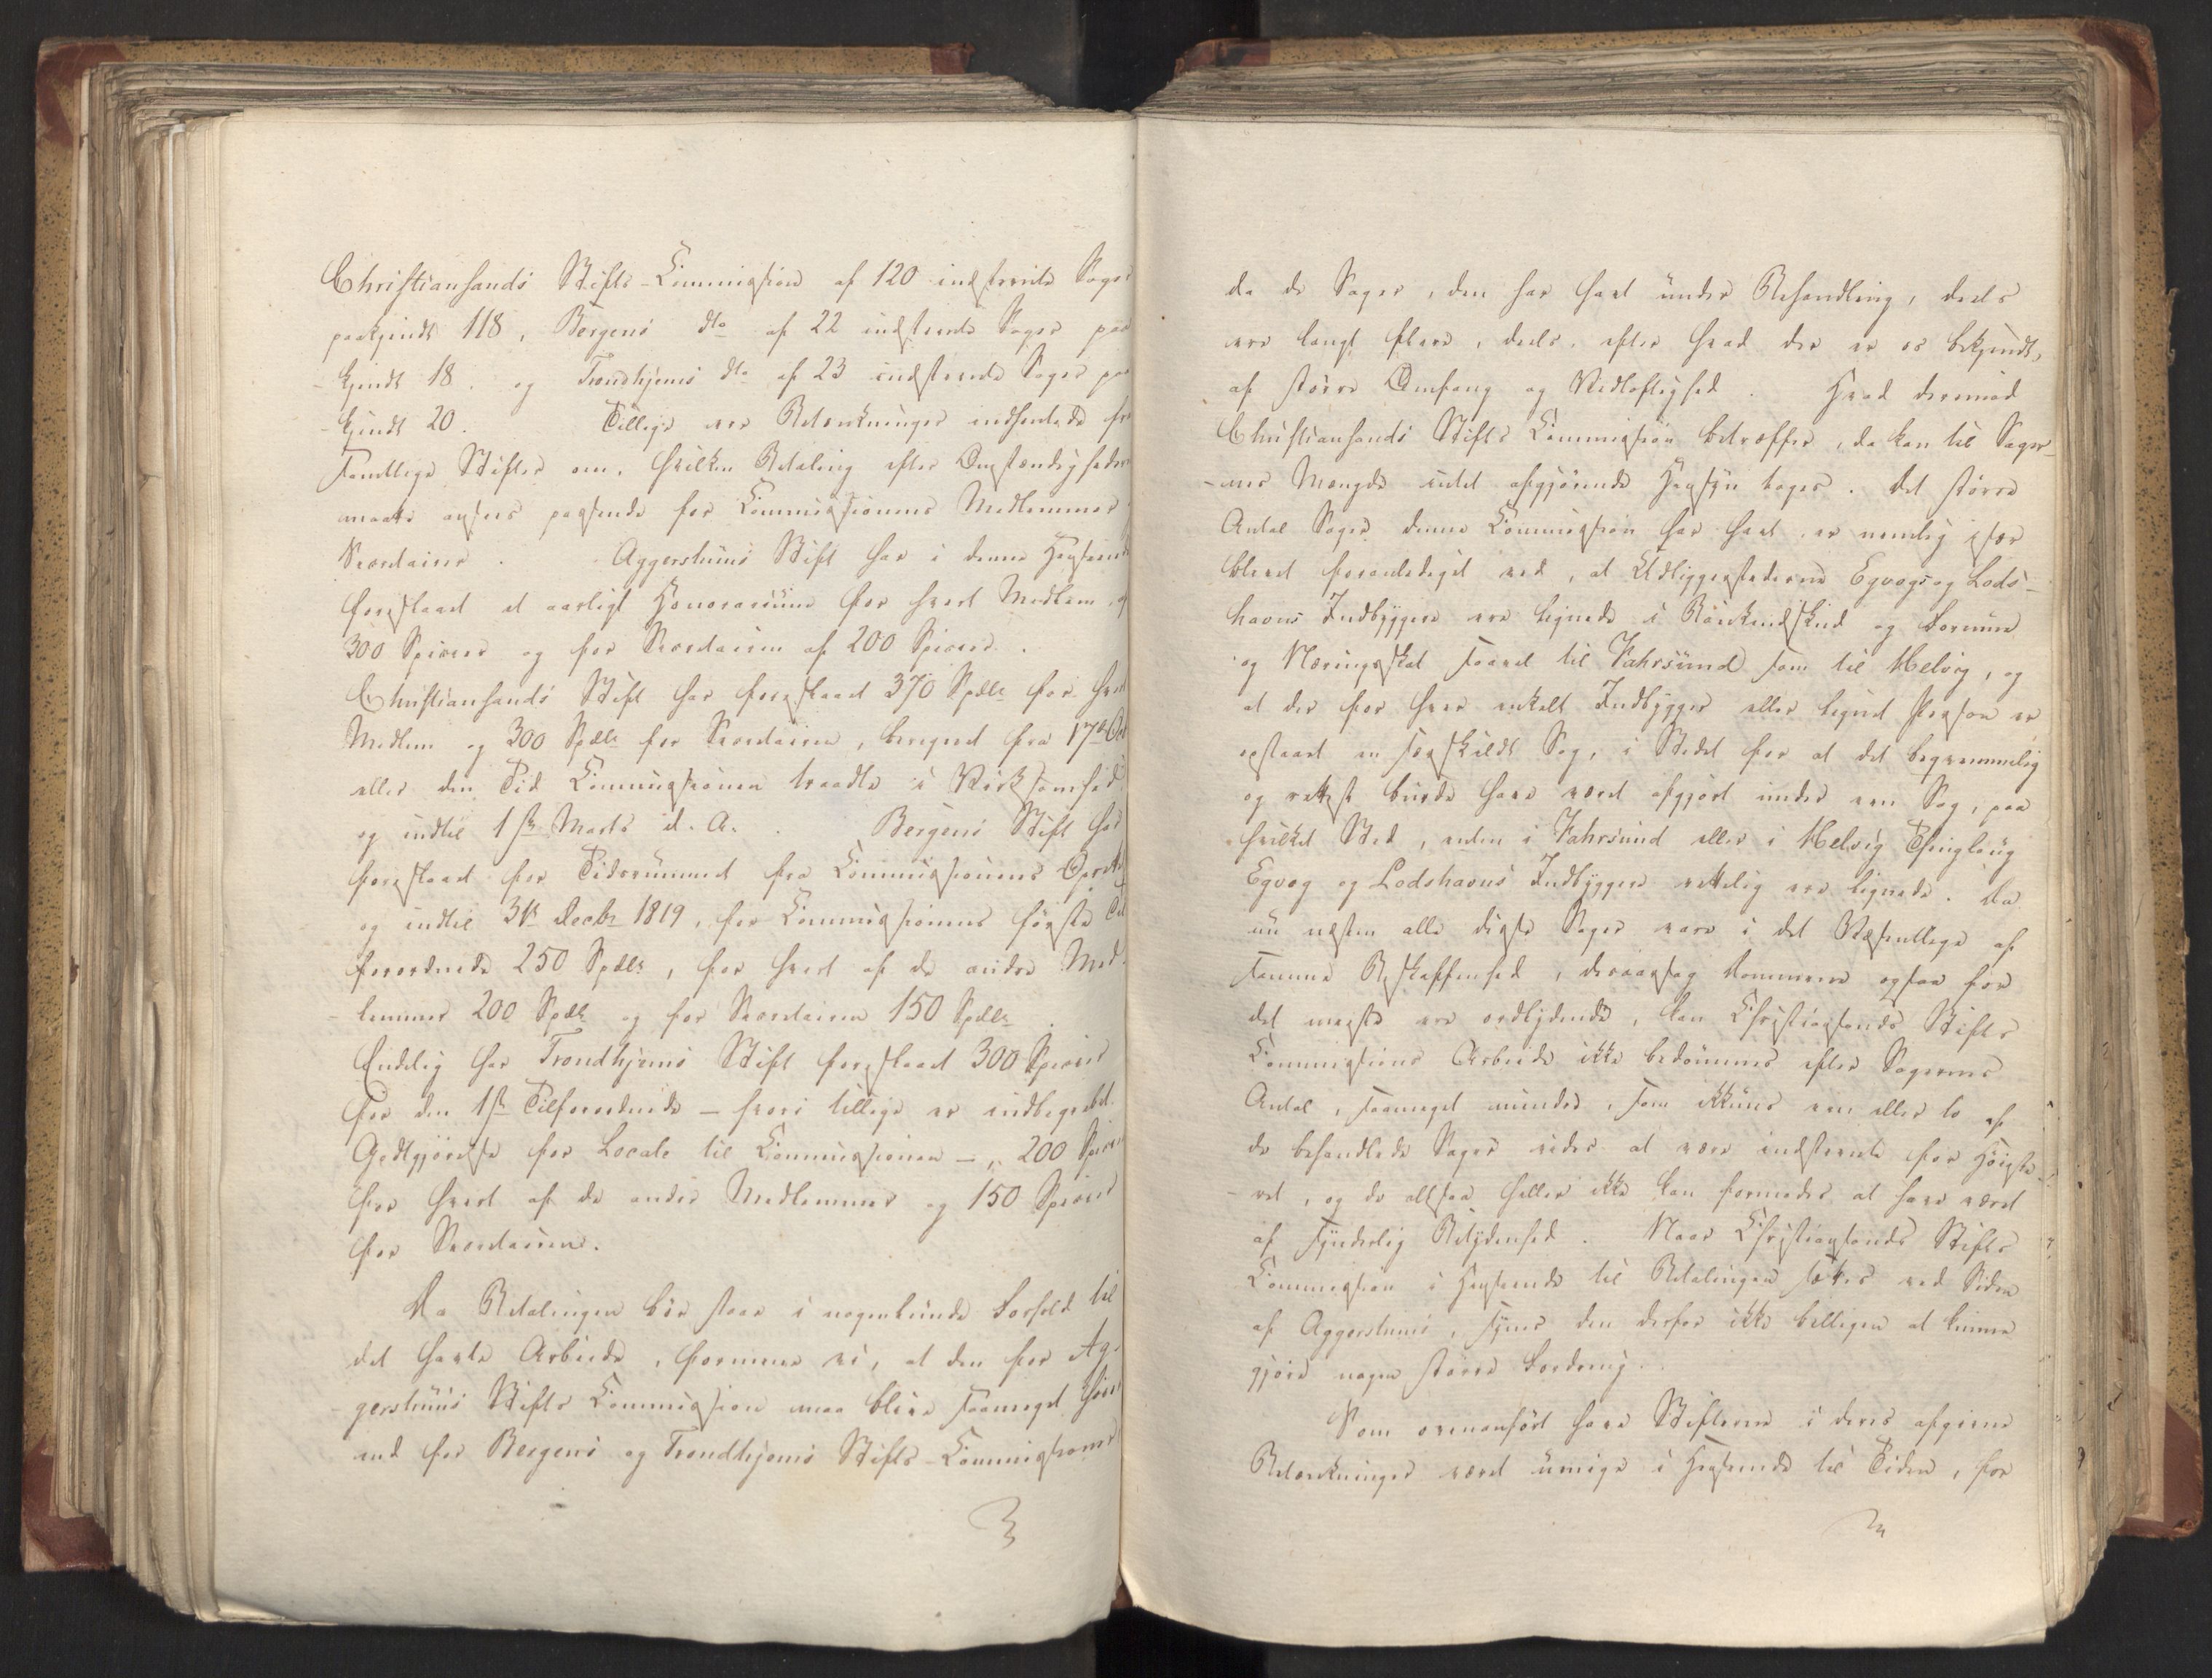 Christiansands Stifts-Commission af 120 indstevnte Sager
paakjendt 118, Bergens dto af 22 indstevnte Sager paa
-kjendt 18. og Trondhjems dto af 23 indstevnte Sager paa
-kjendt 20. Tillige ere Betænkninger indhentede fra
samtlige Stifter om, hvilken Betaling efter Omstændighederne
maatte ansees passende for Commissionens Medlemmer og
Secretairer. Aggershuus Stift har i denne Henseende
foreslaaet et aarligt Honorarium for hvert Medlem, af
300 Specier og for Secretairen af 200 Specier.
Christiansands Stift har foreslaaet 370 Spdlr for hvert
Medlem og 300 Spdlr for Secretairen, beregnet fra 17de
eller den Tid Commissionen traadte i Virksomhed
og indtil 1ste Marts d. A. Bergens Stift har
foreslaaet for Tidsrummet fra Commissionens Oprettelse
og indtil 31te Decbr 1819, for Commissionens første Til
forordnede 250 Spdlr, for hvert af de andre Med-
-lemmer 200 Spdlr og for Secretairen 150 Spdlr.
Endelig har Trondhjems Stift foreslaaet 300 Specier
for den 1ste Tilforordnede – hvori tillige er indbegrebet
Godtgjørelse for Locale til Commissionen –, 200 Specier
for hvert af de andre Medlemmer og 150 Specier
for Secretairen.
Da Betalingen bør staae i nogenlunde Forhold til
det havte Arbeide, formene vi, at den for Ag-
-gershuus Stifts Commission maa blive saameget høiere
end for Bergens og Trondhjems Stifts-Commissioner
da de Sager, den har havt under Behandling, deels
ere langt flere, deels, efter hvad der er os bekjendt,
af større Omfang og Vidløftighed. Hvad derimod
Christiansands Stifts Commission betræffer, da kan til Sager-
-nes Mængde intet afgjørende Hensyn tages. Det større
Antal Sager denne Commission har havt er nemlig især
blevet foranlediget ved, at Udliggerstederne Egvogs og Lods-
havns Indbyggere ere lignede i Brændeviins og Formue
og Næringsskat saavel til Fahrsund som til Helvig, og
at der for hver enkelt Indbygger eller lignet Person er
opstaaet en særskildt Sag, i Stedet for at det begvemmelig
og rettest burde have været afgjort under een Sag, paa
hvilket Sted, enten i Fahrsund eller i Helvig Thinglaug
Egvog og Lodshavns Indbyggere rettelig ere lignede. Da
nu næsten alle disse Sager vare i det Væsentlige af
samme Beskaffenhed, deraarsag Dommene ogsaa for
det meste ere ordlydende, kan Christiansands Stifts
Commissions Arbeide ikke bedømmes efter Sagernes
Antal, saameget mindre, som ikkuns een eller to af
de behandlede Sager vides at være indstevnte for Høieste-
-ret, og de altsaa heller ikke kan formodes at have været
af synderlig Betydenhed. Naar Christiansands Stifts
Commission i Henseende til Betalingen sættes ved Siden
af Aggershuus, synes den derfor ikke billigen at kunne
gjøre nogen større Fordring.
Som ovenanført have Stifterne i deres afgivne
Betænkninger været uenige i Henseende til Tiden, for